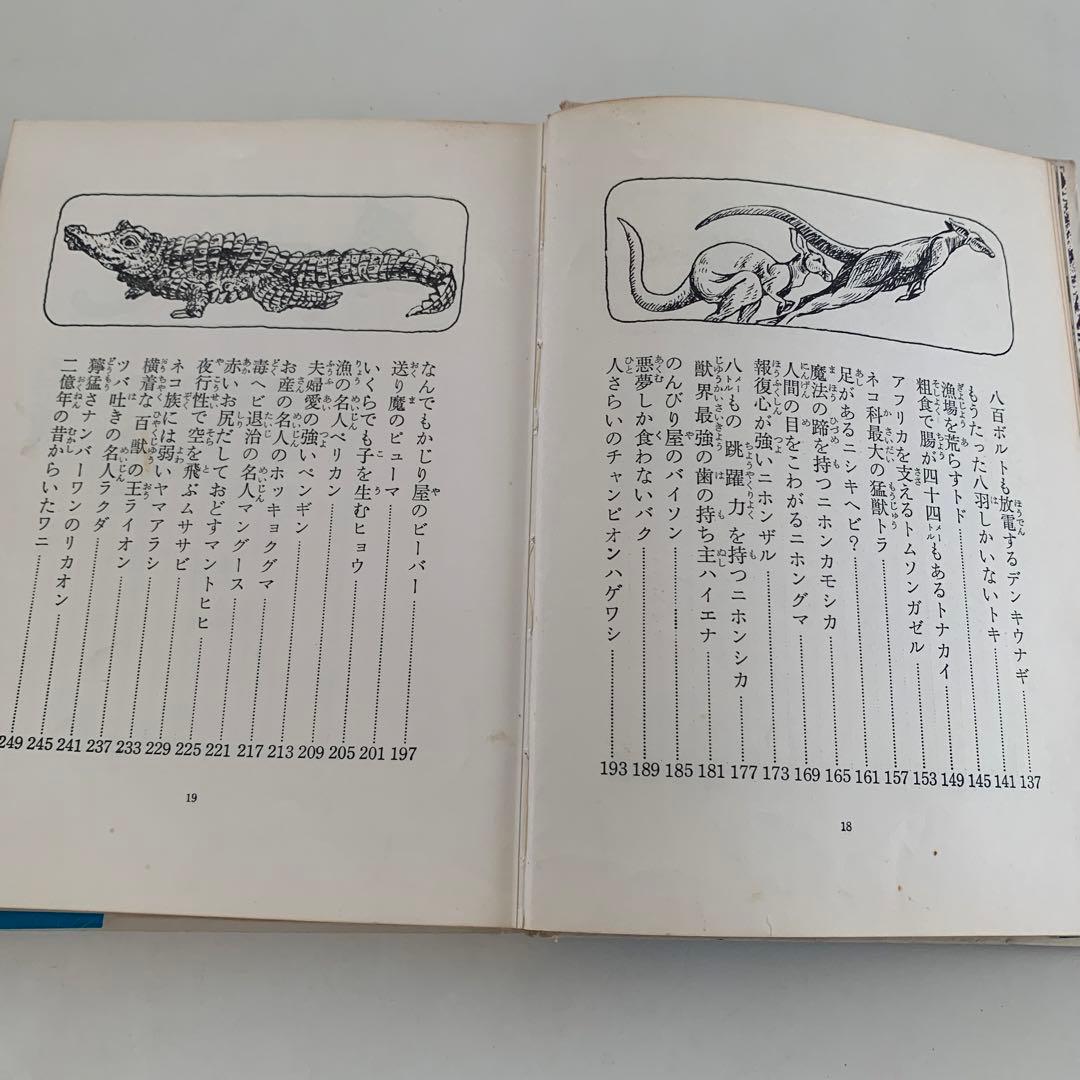 八百ボルトも放電するデンキウナギ 137
もうたった八羽しかいないトキ 141
漁場を荒らすトド 145
粗食で腸が四十四メートルもあるトナカイ 149
アフリカを支えるトムソンガゼル 153
ネコ科最大の猛獣トラ 157
足があるニシキヘビ? 161
魔法の蹄を持つニホンカモシカ 165
人間の目をこわがるニホングマ 169
報復心が強いニホンザル 173
八メートルもの跳躍力を持つニホンシカ 177
獣界最強の歯の持ち主ハイエナ 181
のんびり屋のバイソン 185
悪夢しか食わないバク 189
人さらいのチャンピオンハゲワシ 193
18
なんでもかじり屋のビーバー 197
送り魔のピューマ 201
いくらでも子を生むヒョウ 205
漁の名人ペリカン 209
夫婦愛の強いペンギン 213
お産の名人のホッキョクグマ 217
毒ヘビ退治の名人マングース 221
赤いお尻だしておどすマントヒヒ 225
夜行性で空を飛ぶムササビ 229
ネコ族には弱いヤマアラシ 233
横着な百獣の王ライオン 237
ツバ吐きの名人ラクダ 241
獰猛さナンバーワンのリカオン 245
二億年の昔からいたワニ 249
19